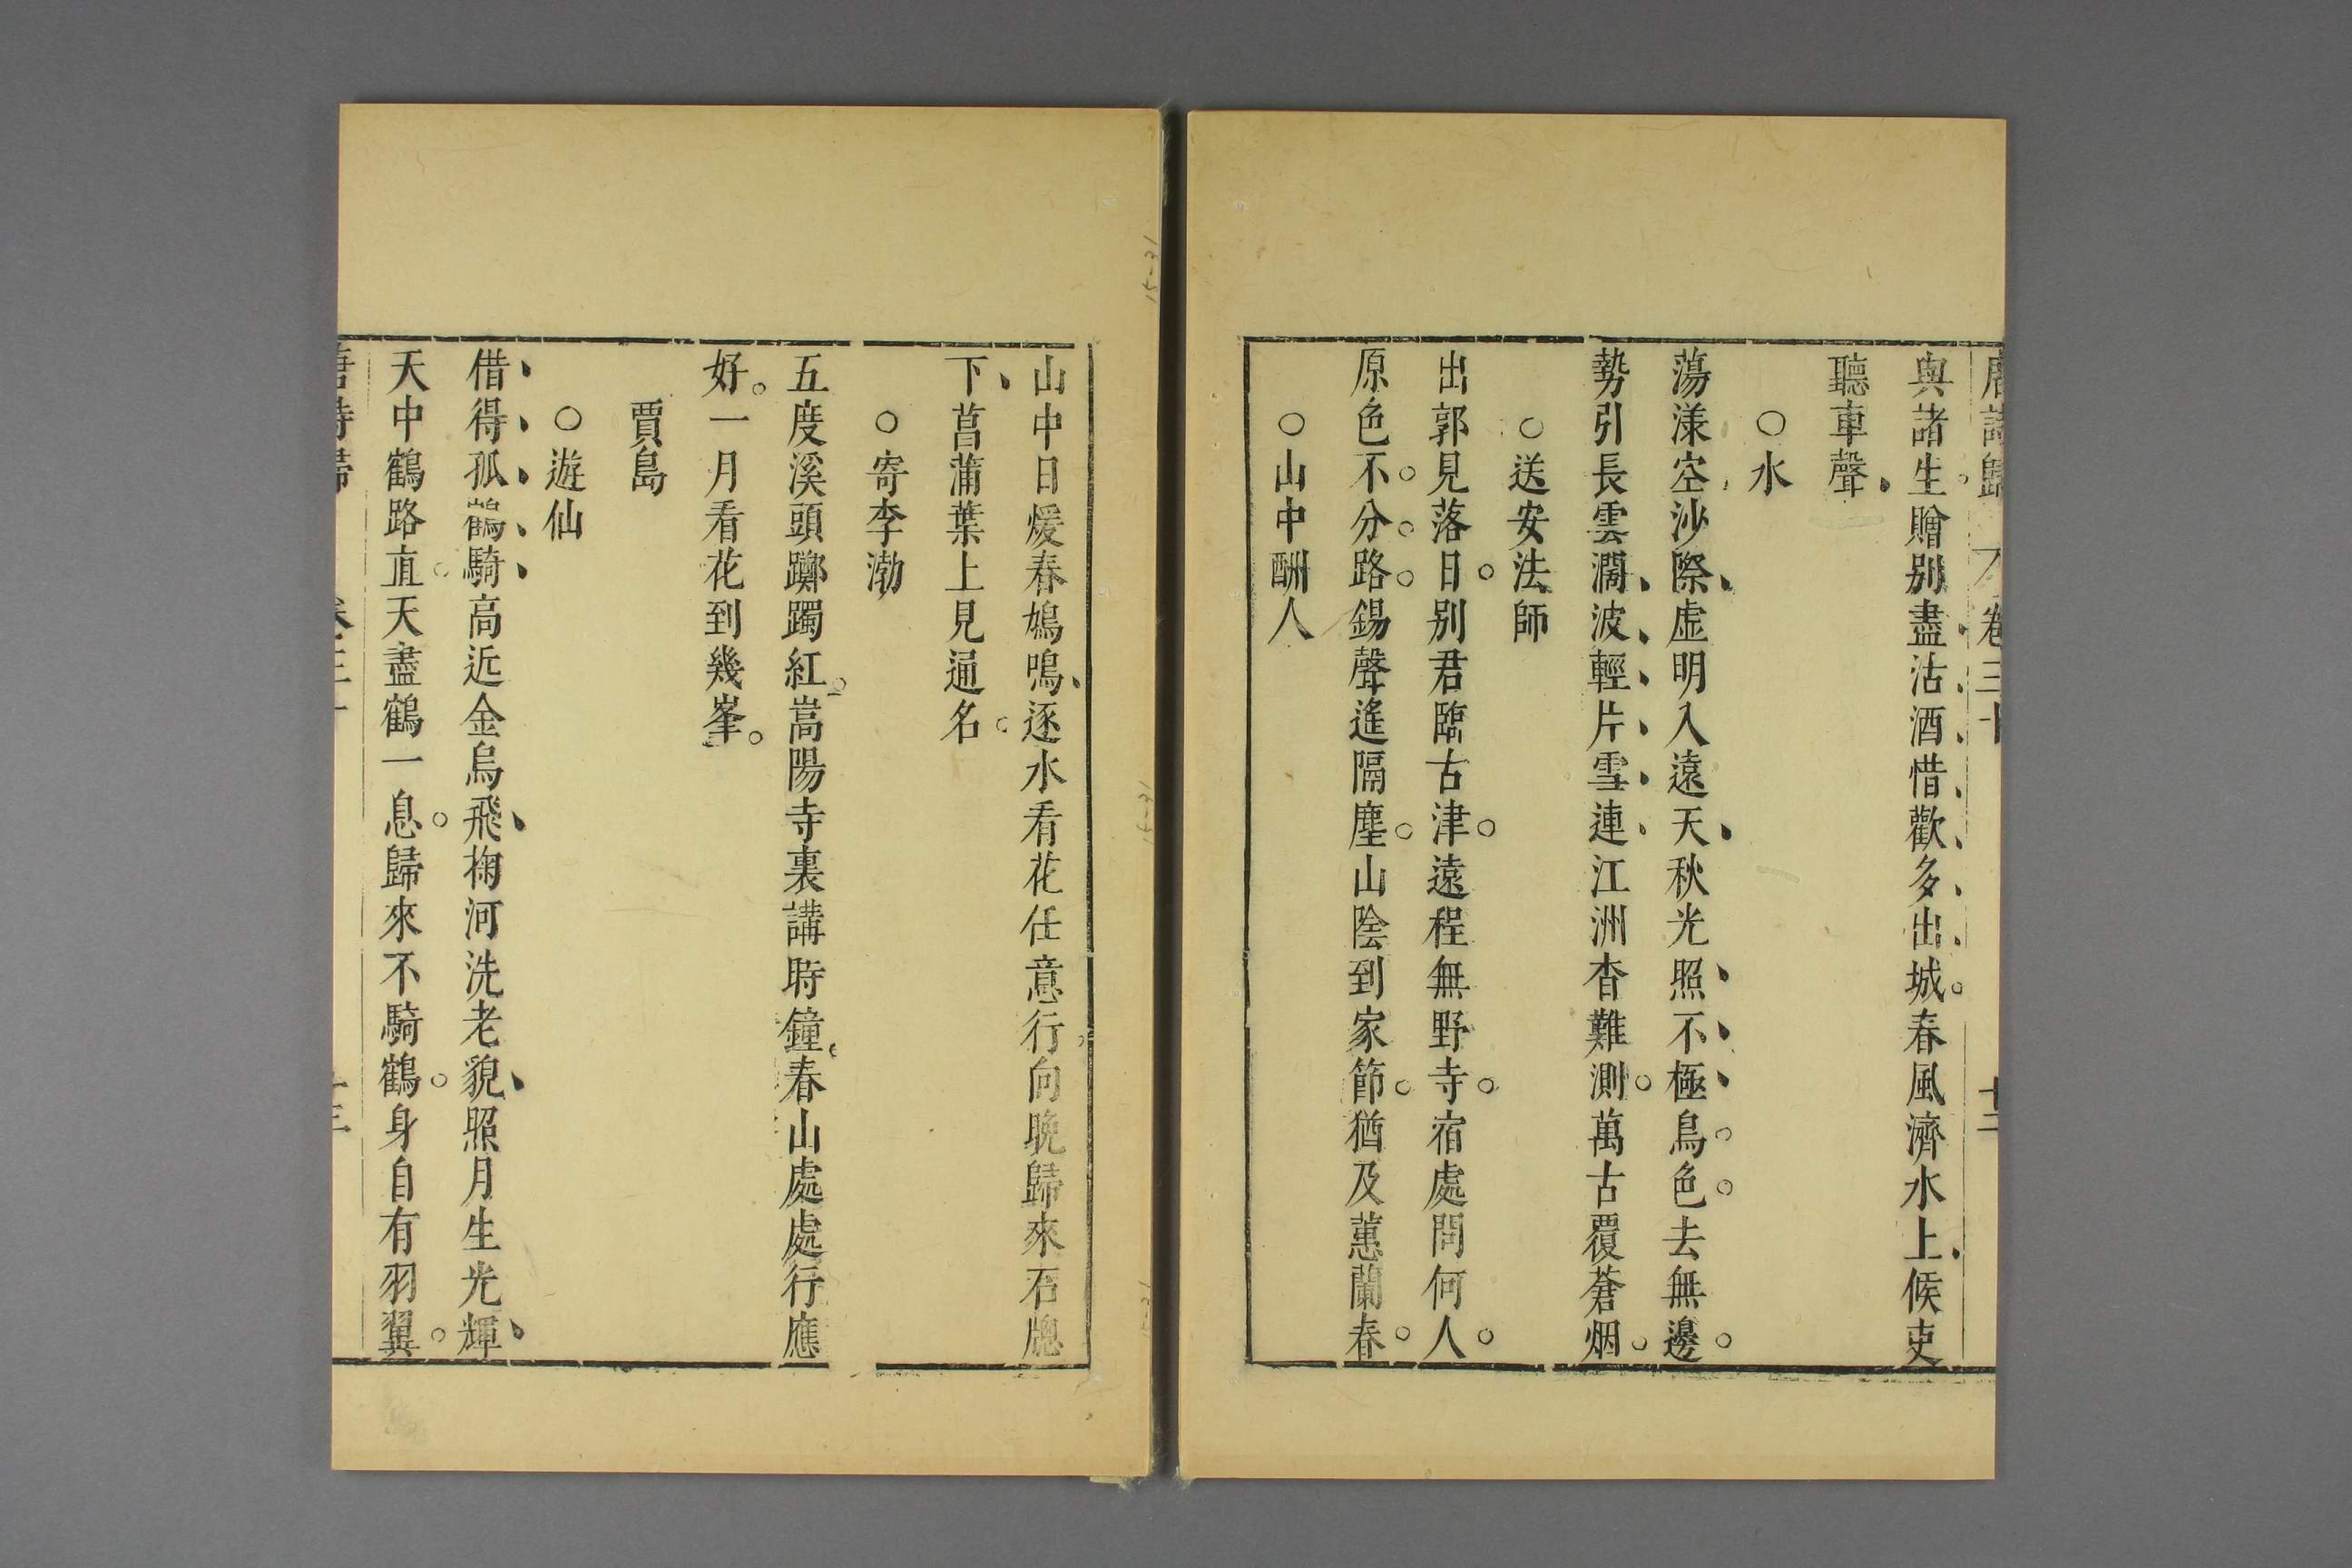 唐詩歸 卷三十 十二
與諸生贈别盡沽酒惜歡多出城春風濟水上候吏
聽車聲
○水
蕩漾空沙際虛明入遠天秋光照不極鳥色去無邊
勢引長雲濶波輕片雪連江洲杳難測萬古覆蒼烟
○送安法師
出郭見落日别君臨古津遠程無野寺宿處問何人
原色不分路錫聲遙隔塵山陰到家節猶及蕙蘭春
○山中酬人
山中日煖春鳩鳴逐水看花任意行向晚歸來石牕
下菖蒲葉上見逋名
○寄李渤
五度溪頭躑躅紅嵩陽寺裏講時鐘春山處處行應
好一月看花到幾峯
賈島
○遊仙
借得孤鶴騎高近金烏飛掬河洗老貌照月生光輝
天中鶴路直天盡鶴一息歸來不騎鶴身自有羽翼
唐詩歸